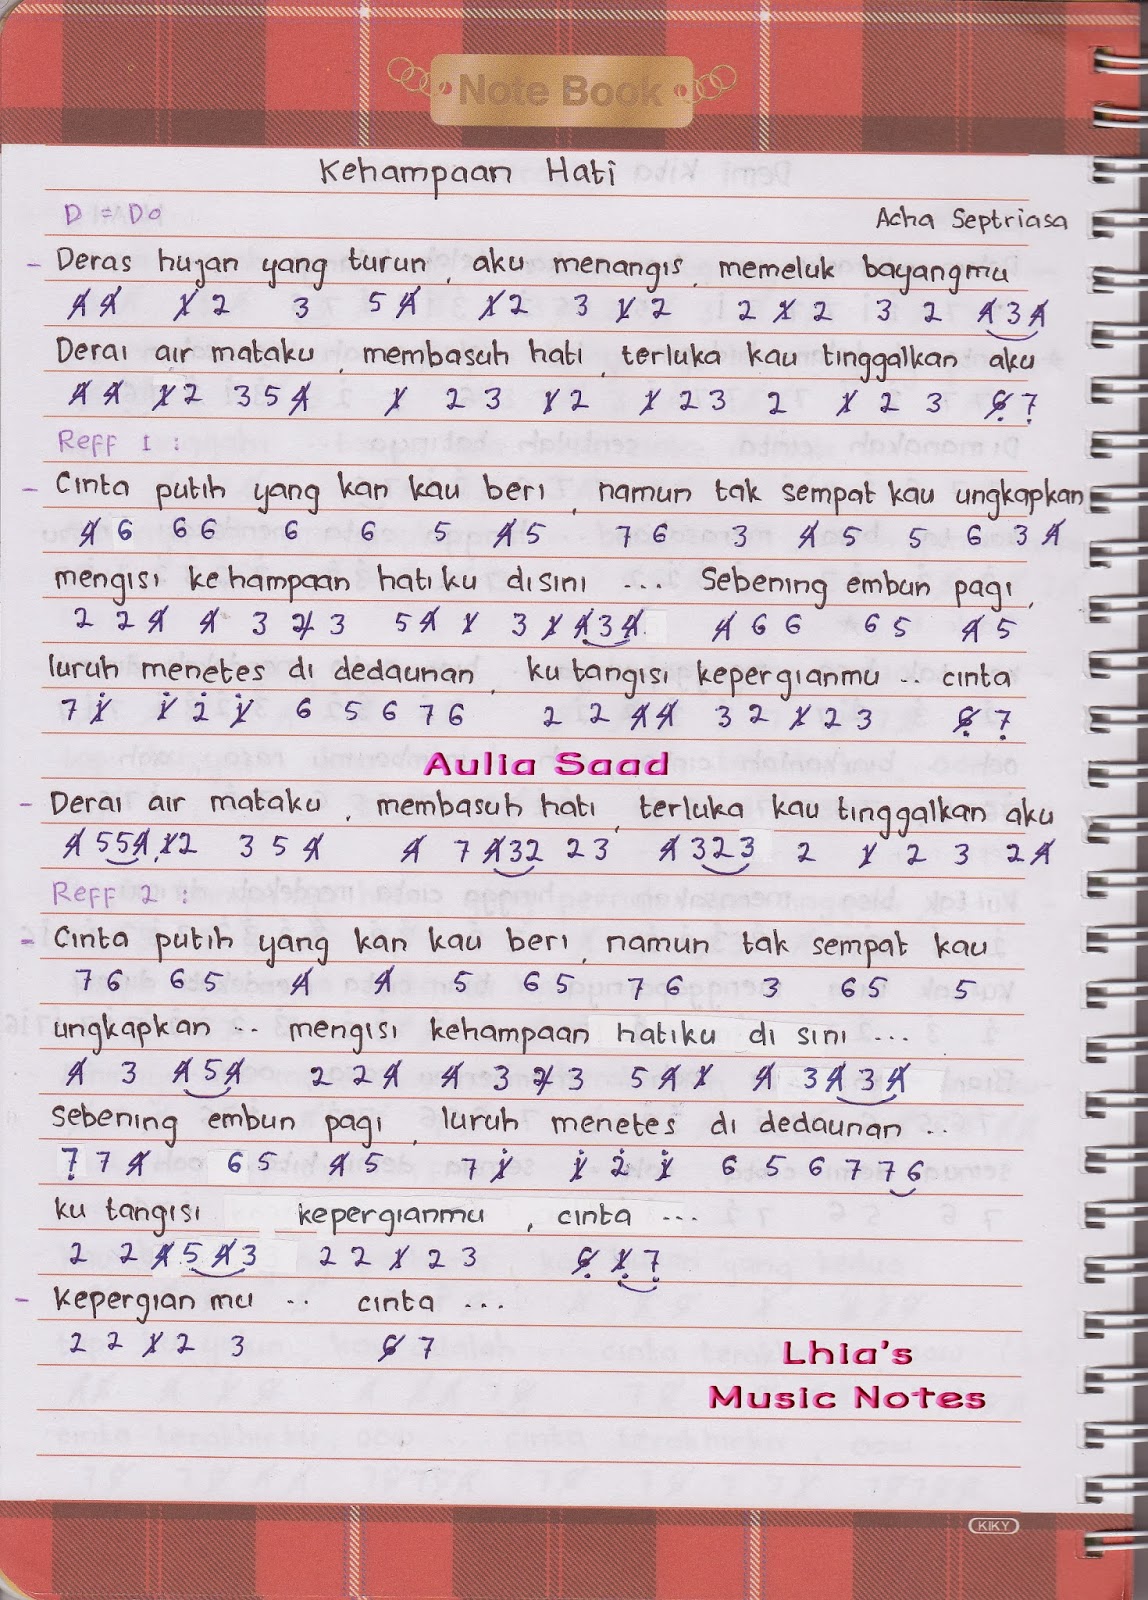 Note Book
Kehampaan Hati
D = Do
Acha Septriasa
- Deras hujan yang turun, aku menangis, memeluk bayangmu
4̸ 4̸ 1̸ 2 3 5 4̸ 1̸ 2 3 1̸ 2 2 1̸ 2 3 2 4̸ 3 4̸
Derai air mataku, membasuh hati, terluka kau tinggalkan aku
4̸ 4̸ 1̸ 2 3 5 4̸ 1̸ 2 3 1̸ 2 1̸ 2 3 2 1̸ 2 3 6̸̣ 7̣
Reff 1 :
- Cinta putih yang kan kau beri, namun tak sempat kau ungkapkan
4̸ 6 6 6 6 6 5 4̸ 5 7 6 3 4̸ 5 5 6 3 4̸
mengisi kehampaan hatiku disini ... Sebening embun pagi,
2 2 4̸ 4̸ 3 2̸ 3 5 4̸ 1̸ 3 1̸ 4̸ 3 4̸ 4̸ 6 6 6 5 4̸ 5
luruh menetes di dedaunan, ku tangisi kepergianmu .. cinta
7 1̸̇ 1̸̇ 2̇ 1̸̇ 6 5 6 7 6 2 2 4̸ 4̸ 3 2 1̸ 2 3 6̸̣ 7̣
Aulia Saad
- Derai air mataku, membasuh hati, terluka kau tinggalkan aku
4̸ 5 5 4̸ 1̸ 2 3 5 4̸ 4̸ 7 4̸ 3 2 2 3 4̸ 3 2 3 2 1̸ 2 3 2 4̸
Reff 2 :
- Cinta putih yang kan kau beri, namun tak sempat kau
7 6 6 5 4̸ 4̸ 5 6 5 7 6 3 6 5 5
ungkapkan ... mengisi kehampaan hatiku di sini ...
4̸ 3 4̸ 5 4̸ 2 2 4̸ 4̸ 3 2̸ 3 5 4̸ 1̸ 4̸ 3 4̸ 3 4̸
Sebening embun pagi, luruh menetes di dedaunan ...
7̣ 7 4̸ 6 5 4̸ 5 7 1̸̇ 1̸̇ 2̇ 1̸̇ 6 5 6 7 7 6
ku tangisi kepergianmu, cinta ...
2 2 4̸ 5 4̸ 3 2 2 1̸ 2 3 6̸̣ 1̸̣ 7̣
- Kepergian mu .. cinta ...
2 2 1̸ 2 3 6̸ 7
Lhia's
Music Notes
KIKY